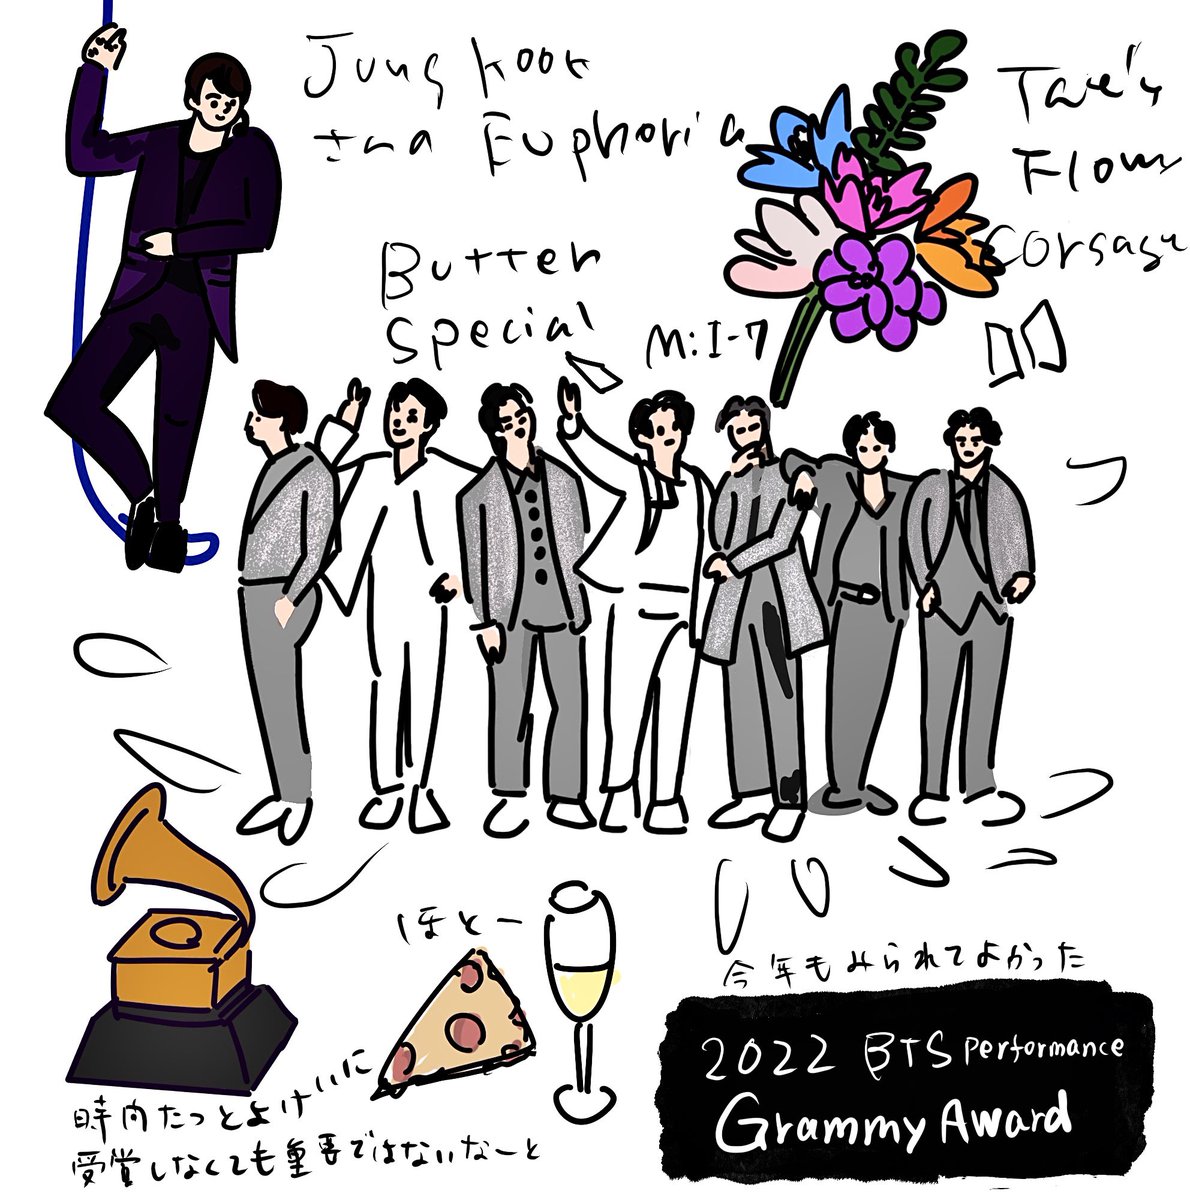 Jung kook
さんの Euphoria
Tae's
Flower
Corsage
Butter
Special
M:I-7
ほとー
今年もみられてよかった
2022 BTS Performance
Grammy Award
時間たつとよけいに
受賞しなくても重要ではないなーと